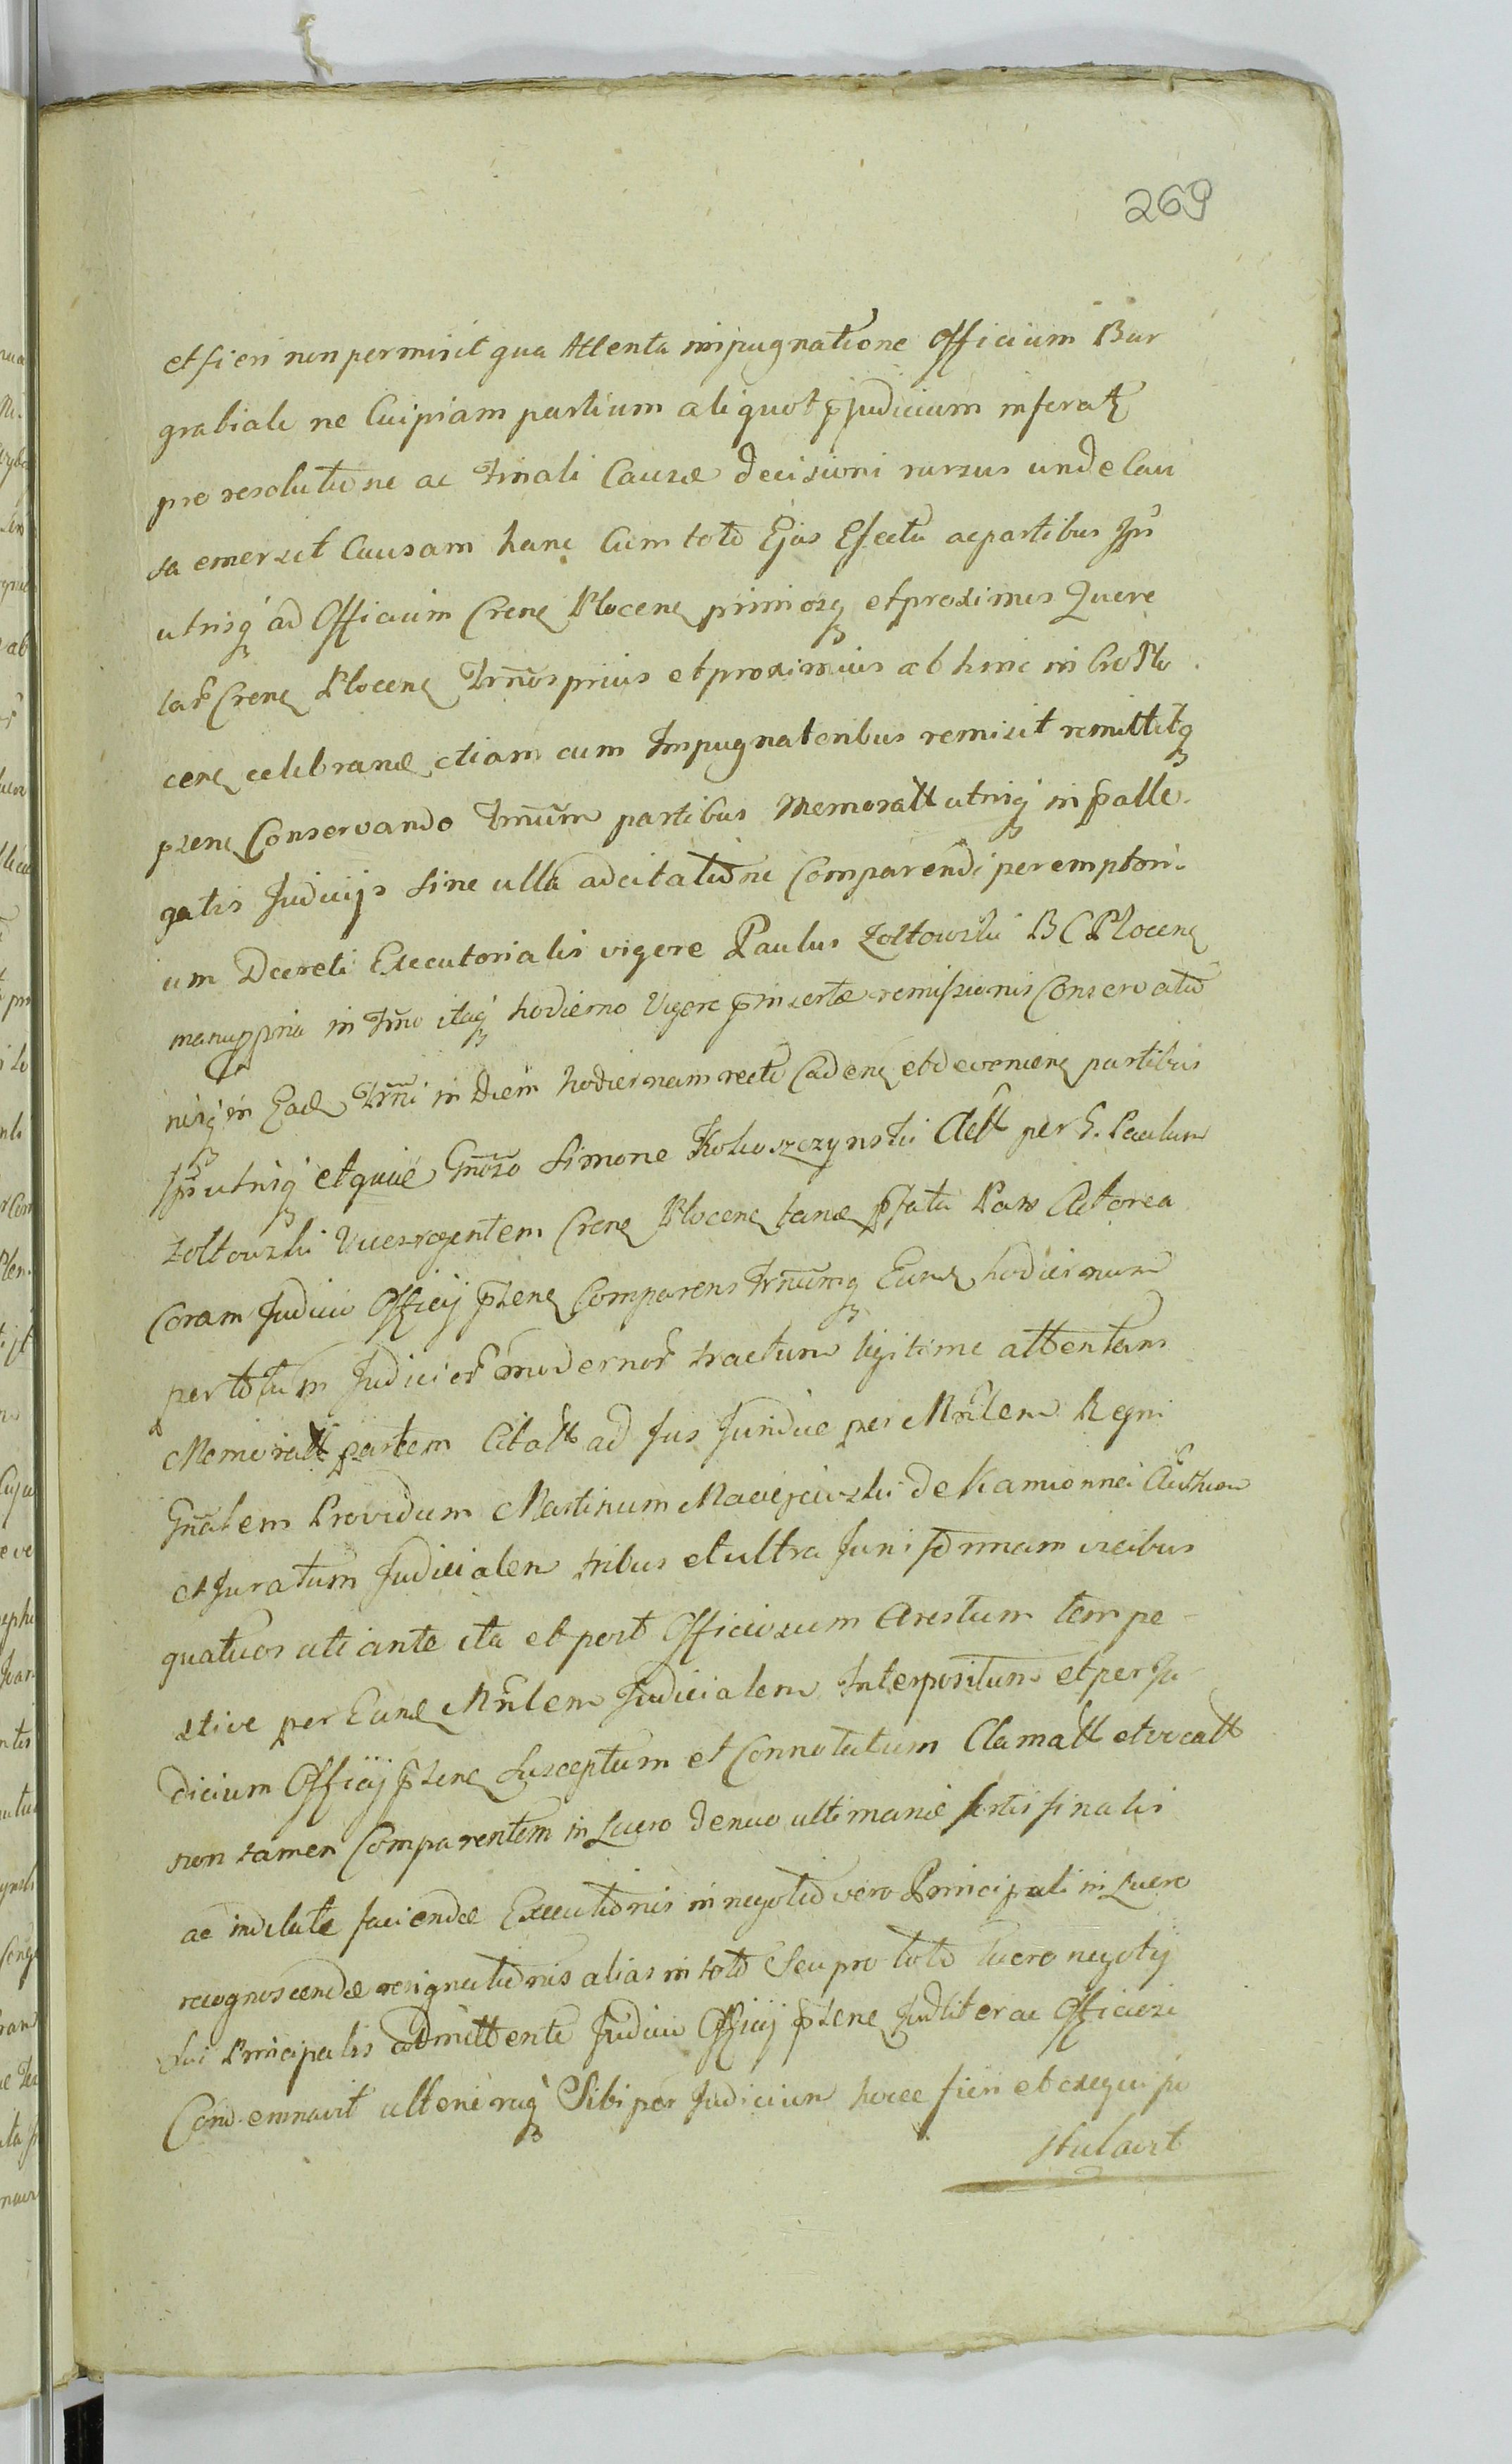 269
et fieri non permisit qua Attenta impugnatione Officium Bur
grabiale ne Cuipiam partium aliquot pjudicium inferatz
pro resolutione ac Finali Causæ decisioni rursus unde Cau
sa emersit Causam hanc Cum toto Ejus Efectu ac partibus Ips
utrisq ad Officium Crene Plocene primiosq et proximus Quere
lar Crene Plocene Trnos prius et proximius ab hinc in Cro Plo
cene celebranæ etiam cum Impugnatoribus remisit remittitq
psene Conservando Trnum partibus Memoratt utrisq in palle
gatis Judicijs sine ulla adcitatione Comparendi peremptori
um Decreti Executorialis vigore Paulus Zołtowski B C Plocene
manuppria in Trno itaq hodierno Vigore pinsertæ remissionis Conservatio
nisq in Eade Trni in Diem hodiernam recte Cadene et deveniene partibus
Ips utrisq et quæ Gnoso Simone Kokoszczynski Act per G. Paulum
Zołtowski Vicesregentem Crene Plocene tanæ pfata Pars Actorea
Coram Judicio Officij psene Comparens Trnumq Eune hodiernum
per totum Judicior modernor tractum legitime attentans
Memoratt partem Citatt ad Jus Juridice per Mrlem Regni
Gnalem Providum Martinum Maciejewski de Kamionnei Authen
et Juratum Judicialem tribus et ultra Juris formam vicibus
quatuor uti ante ita et post Officiosum Arestum tempe-
stive per Eune Mrlem Judicialem Interpositum et per Ju
dicium Officij psene Susceptum et Connotatum Clamatt et vocatt
non tamen Comparentem in Lucro denuo ultimariæ sortis finalis
ac indilate faciendæ Executionis in negotio vero Principali in Lucro
recognoscendæ resignationis alias in toto seu pro toto lucro negotij
sui Principalis admittente Judicio Officij psene Judliter ac Officiose
Condemnavit ulteriusq Sibi per Judicium hocce fieri et exequi po
stulavit